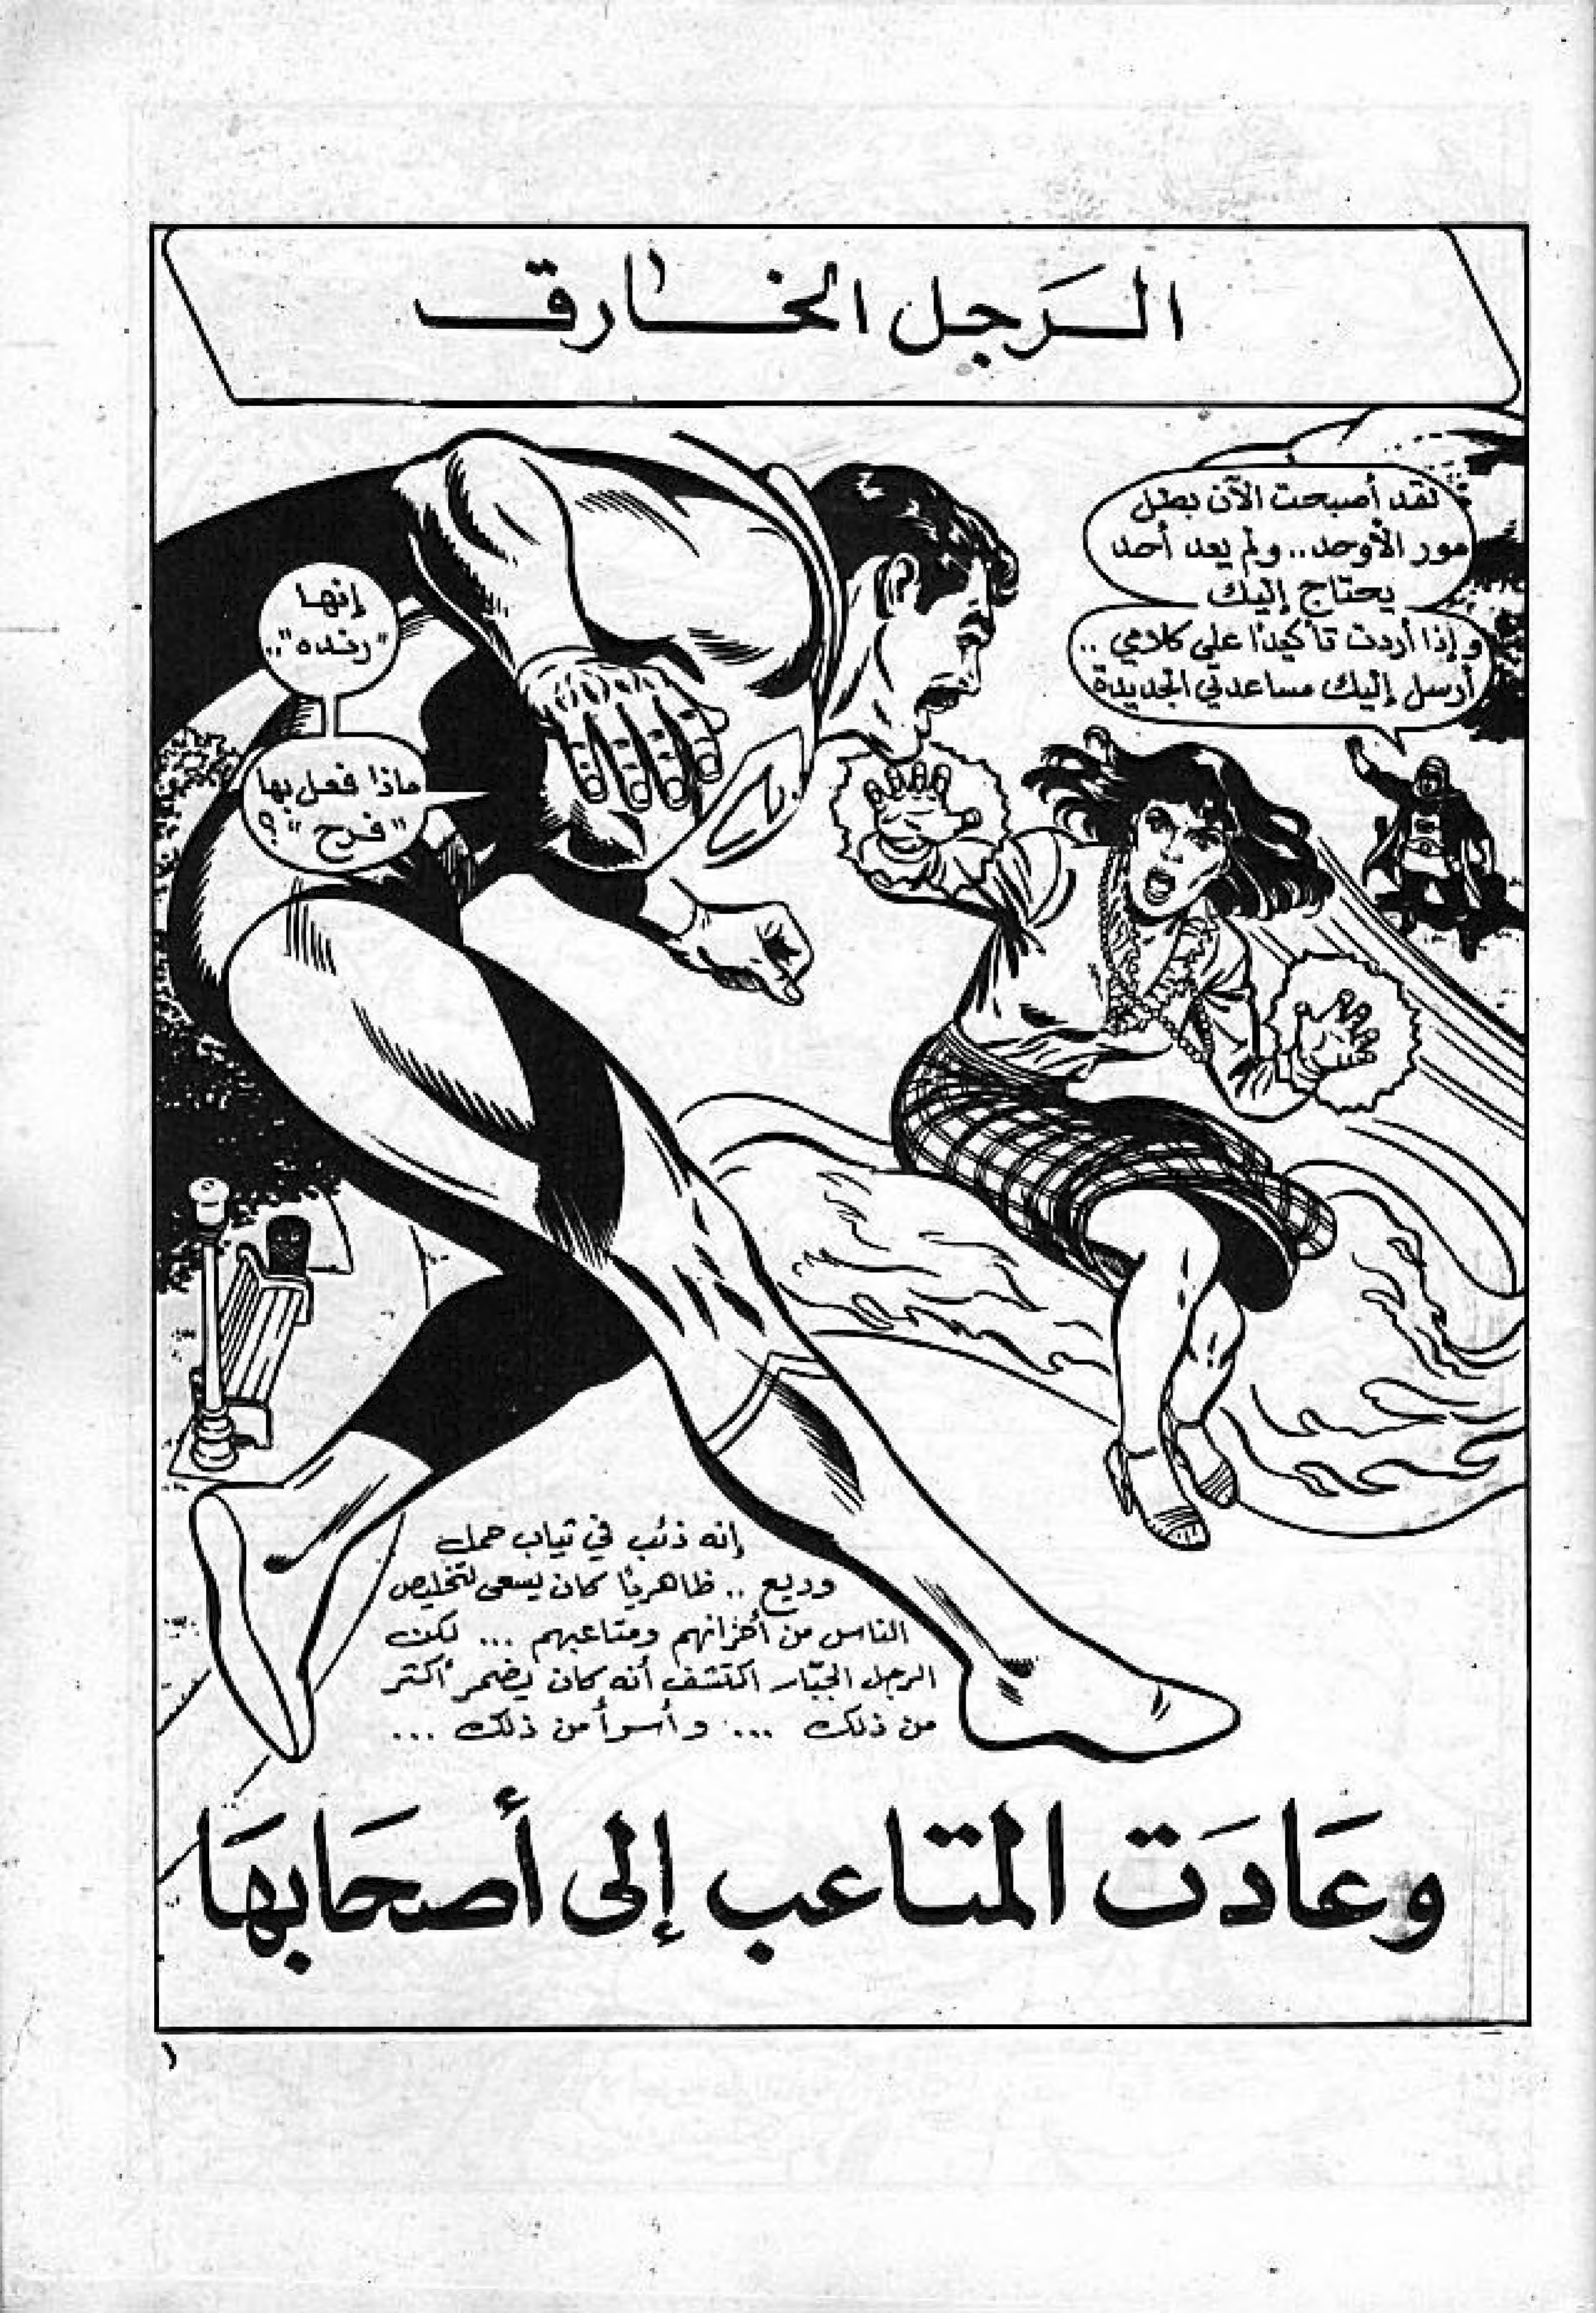 الرَجل الخارق
لقد أصبحت الآن بطل
مور الأوحد.. ولم يعد أحد
يحتاج إليك
وإذا أردت تأكيدًا على كلامي ..
أرسل إليك مساعدتي الجديدة
إنها
"رنده"..
ماذا فعل بها
"فرح"؟
إنه ذئب في ثياب حمل
وديع .. ظاهريًا كان يسعى لتخليص
الناس من أحزانهم ومتاعبهم ... لكن
الرجل الجبّار اكتشف أنه كان يضمر أكثر
من ذلك ... وأسوأ من ذلك ...
وعَادَت المتاعب إلى أصحَابهَا
١